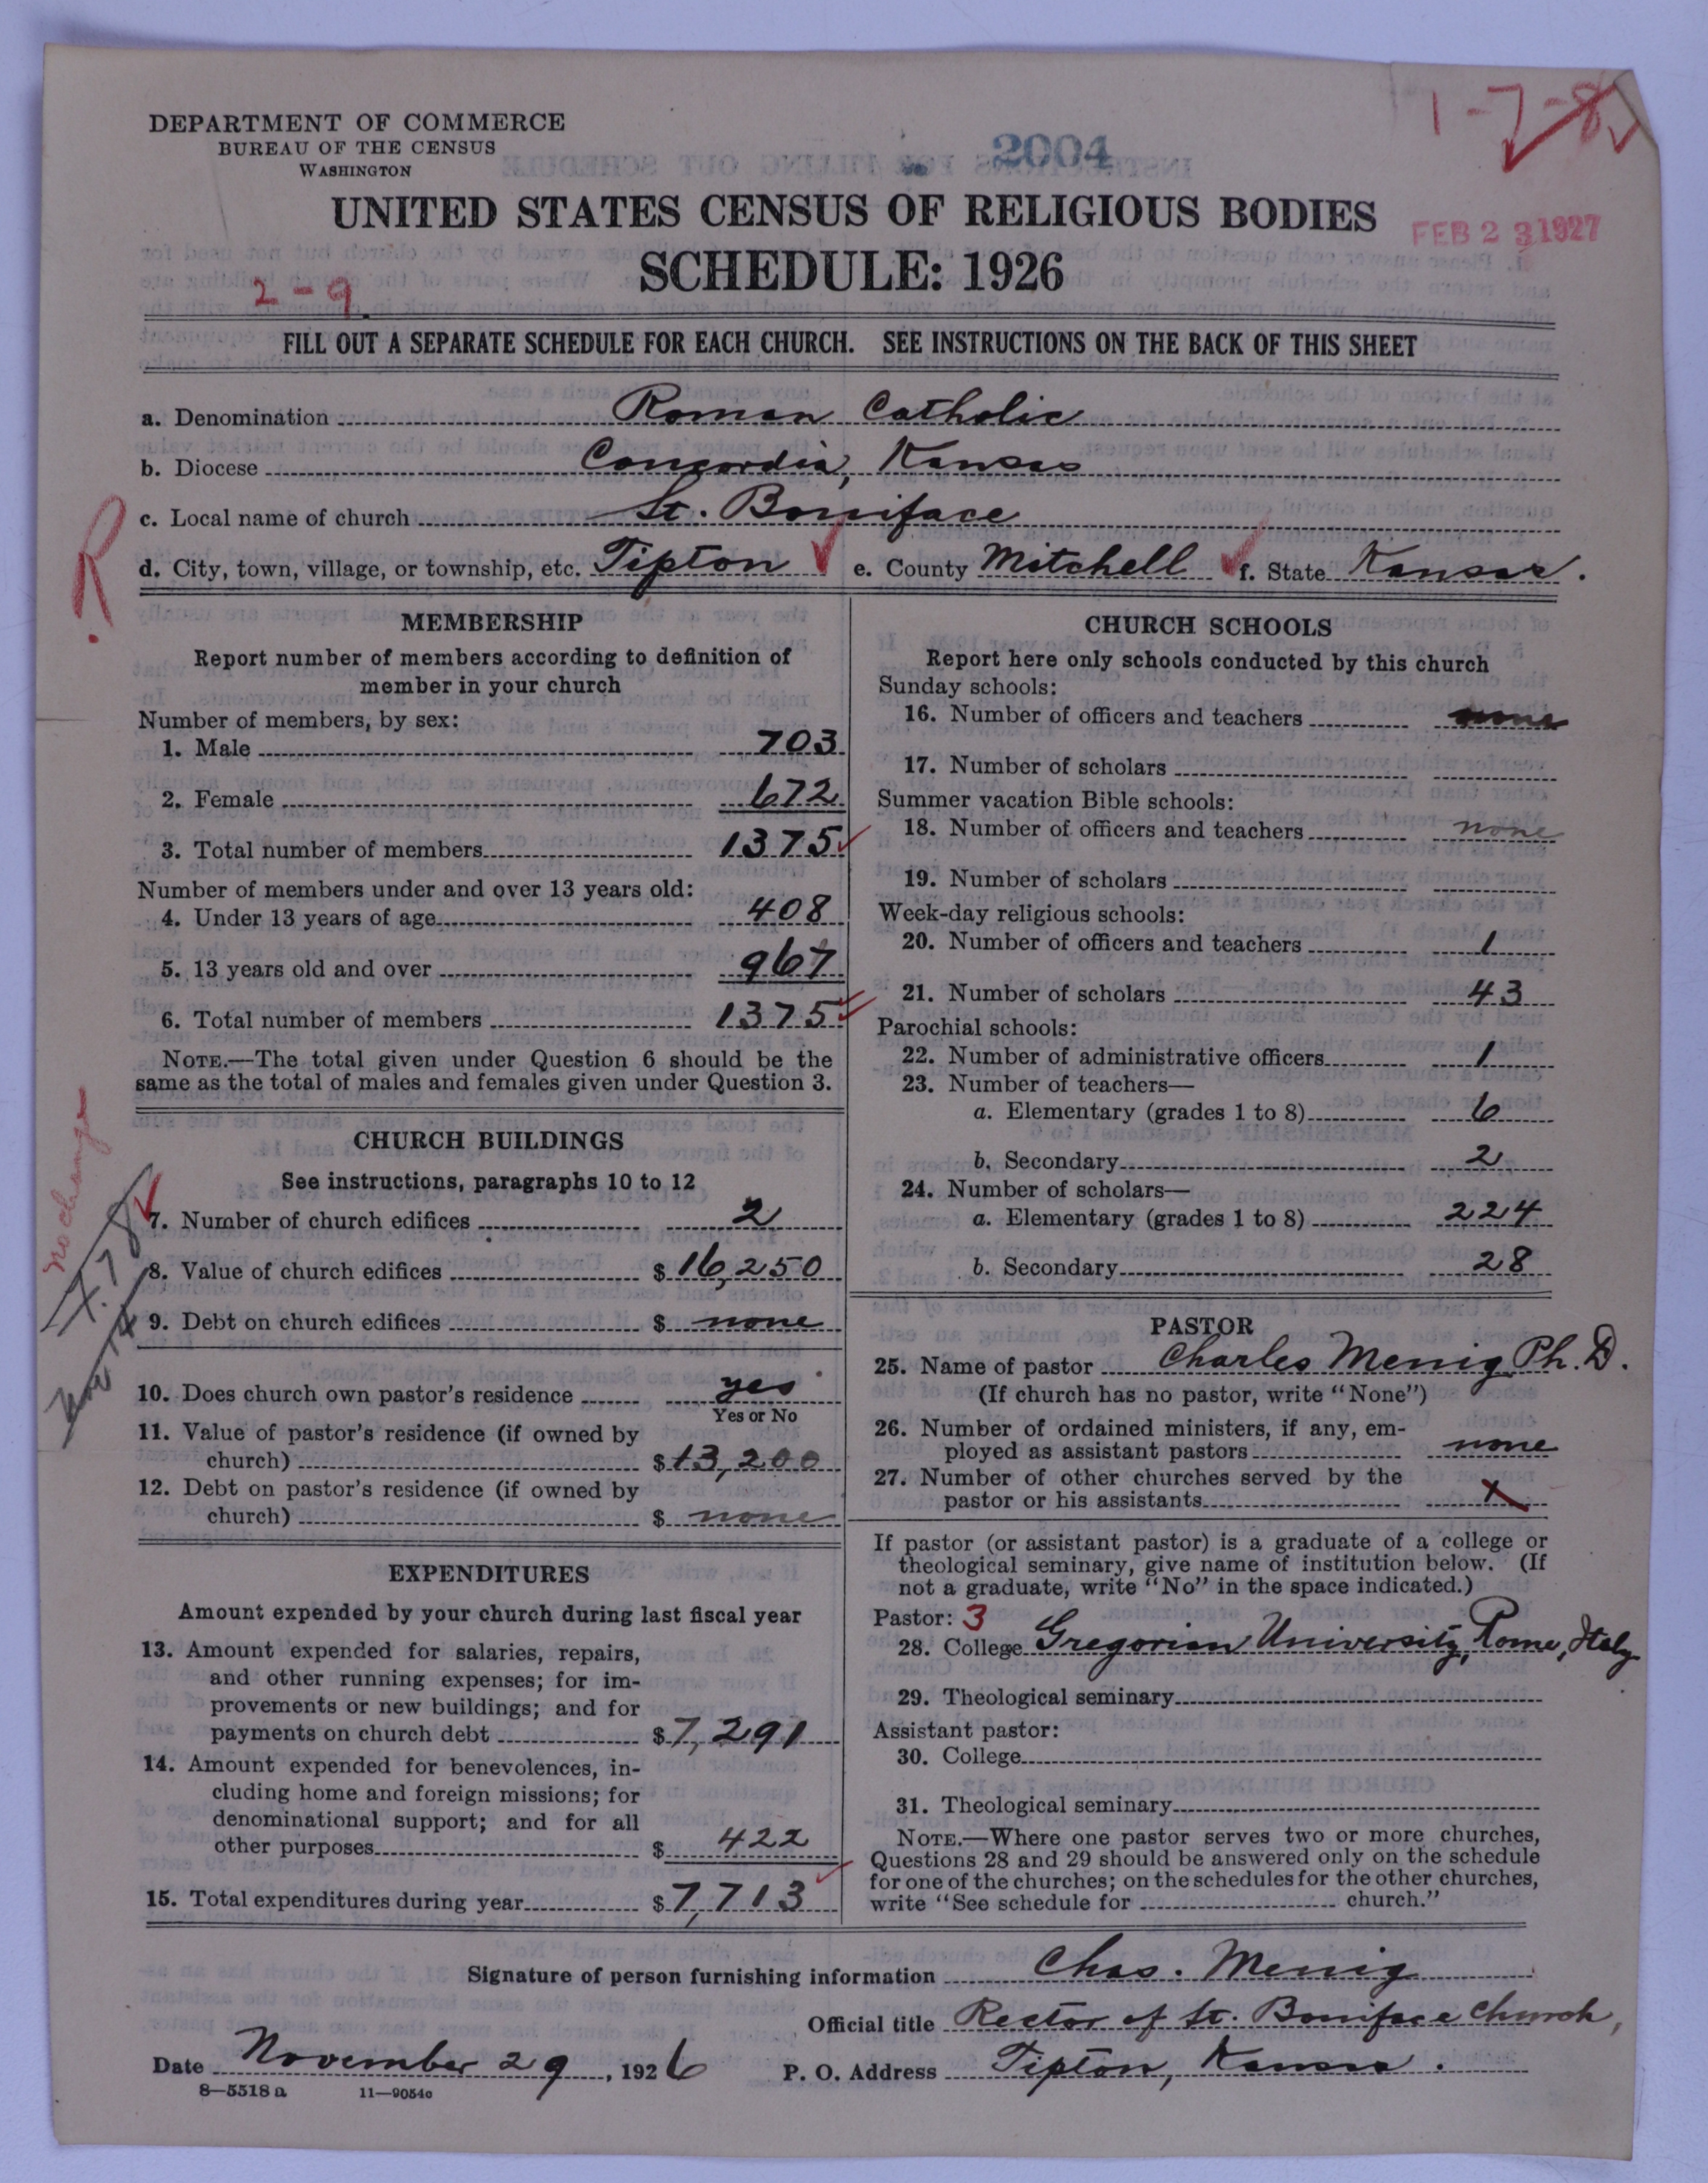 DEPARTMENT OF COMMERCE
BUREAU OF THE CENSUS
WASHINGTON
2004
1-7-8
UNITED STATES CENSUS OF RELIGIOUS BODIES
FEB 23 1927
SCHEDULE: 1926
2-9
FILL OUT A SEPARATE SCHEDULE FOR EACH CHURCH. SEE INSTRUCTIONS ON THE BACK OF THIS SHEET
a. Denomination Roman Catholic
b. Diocese Concordia, Kansas
c. Local name of church St. Boniface
R
d. City, town, village, or township, etc. Tipton e. County Mitchell f. State Kansas.
MEMBERSHIP
Report number of members according to definition of
member in your church
Number of members, by sex:
1. Male 703
2. Female 672
3. Total number of members 1375
Number of members under and over 13 years old:
4. Under 13 years of age 408
5. 13 years old and over 967
6. Total number of members 1375
NOTE.—The total given under Question 6 should be the
same as the total of males and females given under Question 3.
no change
CHURCH BUILDINGS
See instructions, paragraphs 10 to 12
7. Number of church edifices 2
8. Value of church edifices $ 16,250
9. Debt on church edifices $ none
10. Does church own pastor's residence yes
Yes or No
11. Value of pastor's residence (if owned by
church) $ 13,200
12. Debt on pastor's residence (if owned by
church) $ none
EXPENDITURES
Amount expended by your church during last fiscal year
13. Amount expended for salaries, repairs,
and other running expenses; for im-
provements or new buildings; and for
payments on church debt $ 7,291
14. Amount expended for benevolences, in-
cluding home and foreign missions; for
denominational support; and for all
other purposes $ 422
15. Total expenditures during year $ 7,713
CHURCH SCHOOLS
Report here only schools conducted by this church
Sunday schools:
16. Number of officers and teachers none
17. Number of scholars
Summer vacation Bible schools:
18. Number of officers and teachers none
19. Number of scholars
Week-day religious schools:
20. Number of officers and teachers 1
21. Number of scholars 43
Parochial schools:
22. Number of administrative officers 1
23. Number of teachers—
a. Elementary (grades 1 to 8) 6
b. Secondary 2
24. Number of scholars—
a. Elementary (grades 1 to 8) 224
b. Secondary 28
PASTOR
25. Name of pastor Charles Menig Ph. D.
(If church has no pastor, write "None")
26. Number of ordained ministers, if any, em-
ployed as assistant pastors none
27. Number of other churches served by the
pastor or his assistants x
If pastor (or assistant pastor) is a graduate of a college or
theological seminary, give name of institution below. (If
not a graduate, write "No" in the space indicated.)
Pastor: 3
28. College Gregorian University, Rome, Italy
29. Theological seminary
Assistant pastor:
30. College
31. Theological seminary
NOTE.—Where one pastor serves two or more churches,
Questions 28 and 29 should be answered only on the schedule
for one of the churches; on the schedules for the other churches,
write "See schedule for church."
Signature of person furnishing information Chas. Menig
Official title Rector of St. Boniface Church,
Date November 29, 1926 P. O. Address Tipton, Kansas.
8—5518 a 11—9054c